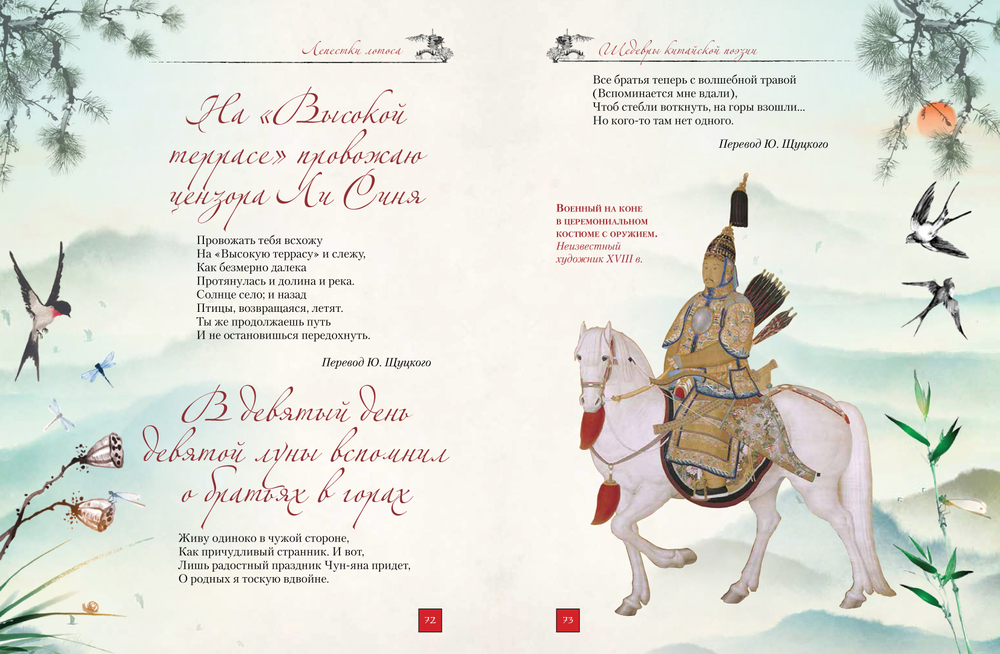 Лепестки лотоса
На «Высокой
террасе» провожаю
цензора Ли Синя
Провожать тебя всхожу
На «Высокую террасу» и слежу,
Как безмерно далека
Протянулась и долина и река.
Солнце село; и назад
Птицы, возвращаяся, летят.
Ты же продолжаешь путь
И не остановишься передохнуть.
Перевод Ю. Щуцкого
В девятый день
девятой луны вспомнил
о братьях в горах
Живу одиноко в чужой стороне,
Как причудливый странник. И вот,
Лишь радостный праздник Чун-яна придет,
О родных я тоскую вдвойне.
72
Шедевры китайской поэзии
Все братья теперь с волшебной травой
(Вспоминается мне вдали),
Чтоб стебли воткнуть, на горы взошли...
Но кого-то там нет одного.
Перевод Ю. Щуцкого
Военный на коне
в церемониальном
костюме с оружием.
Неизвестный
художник XVIII в.
73